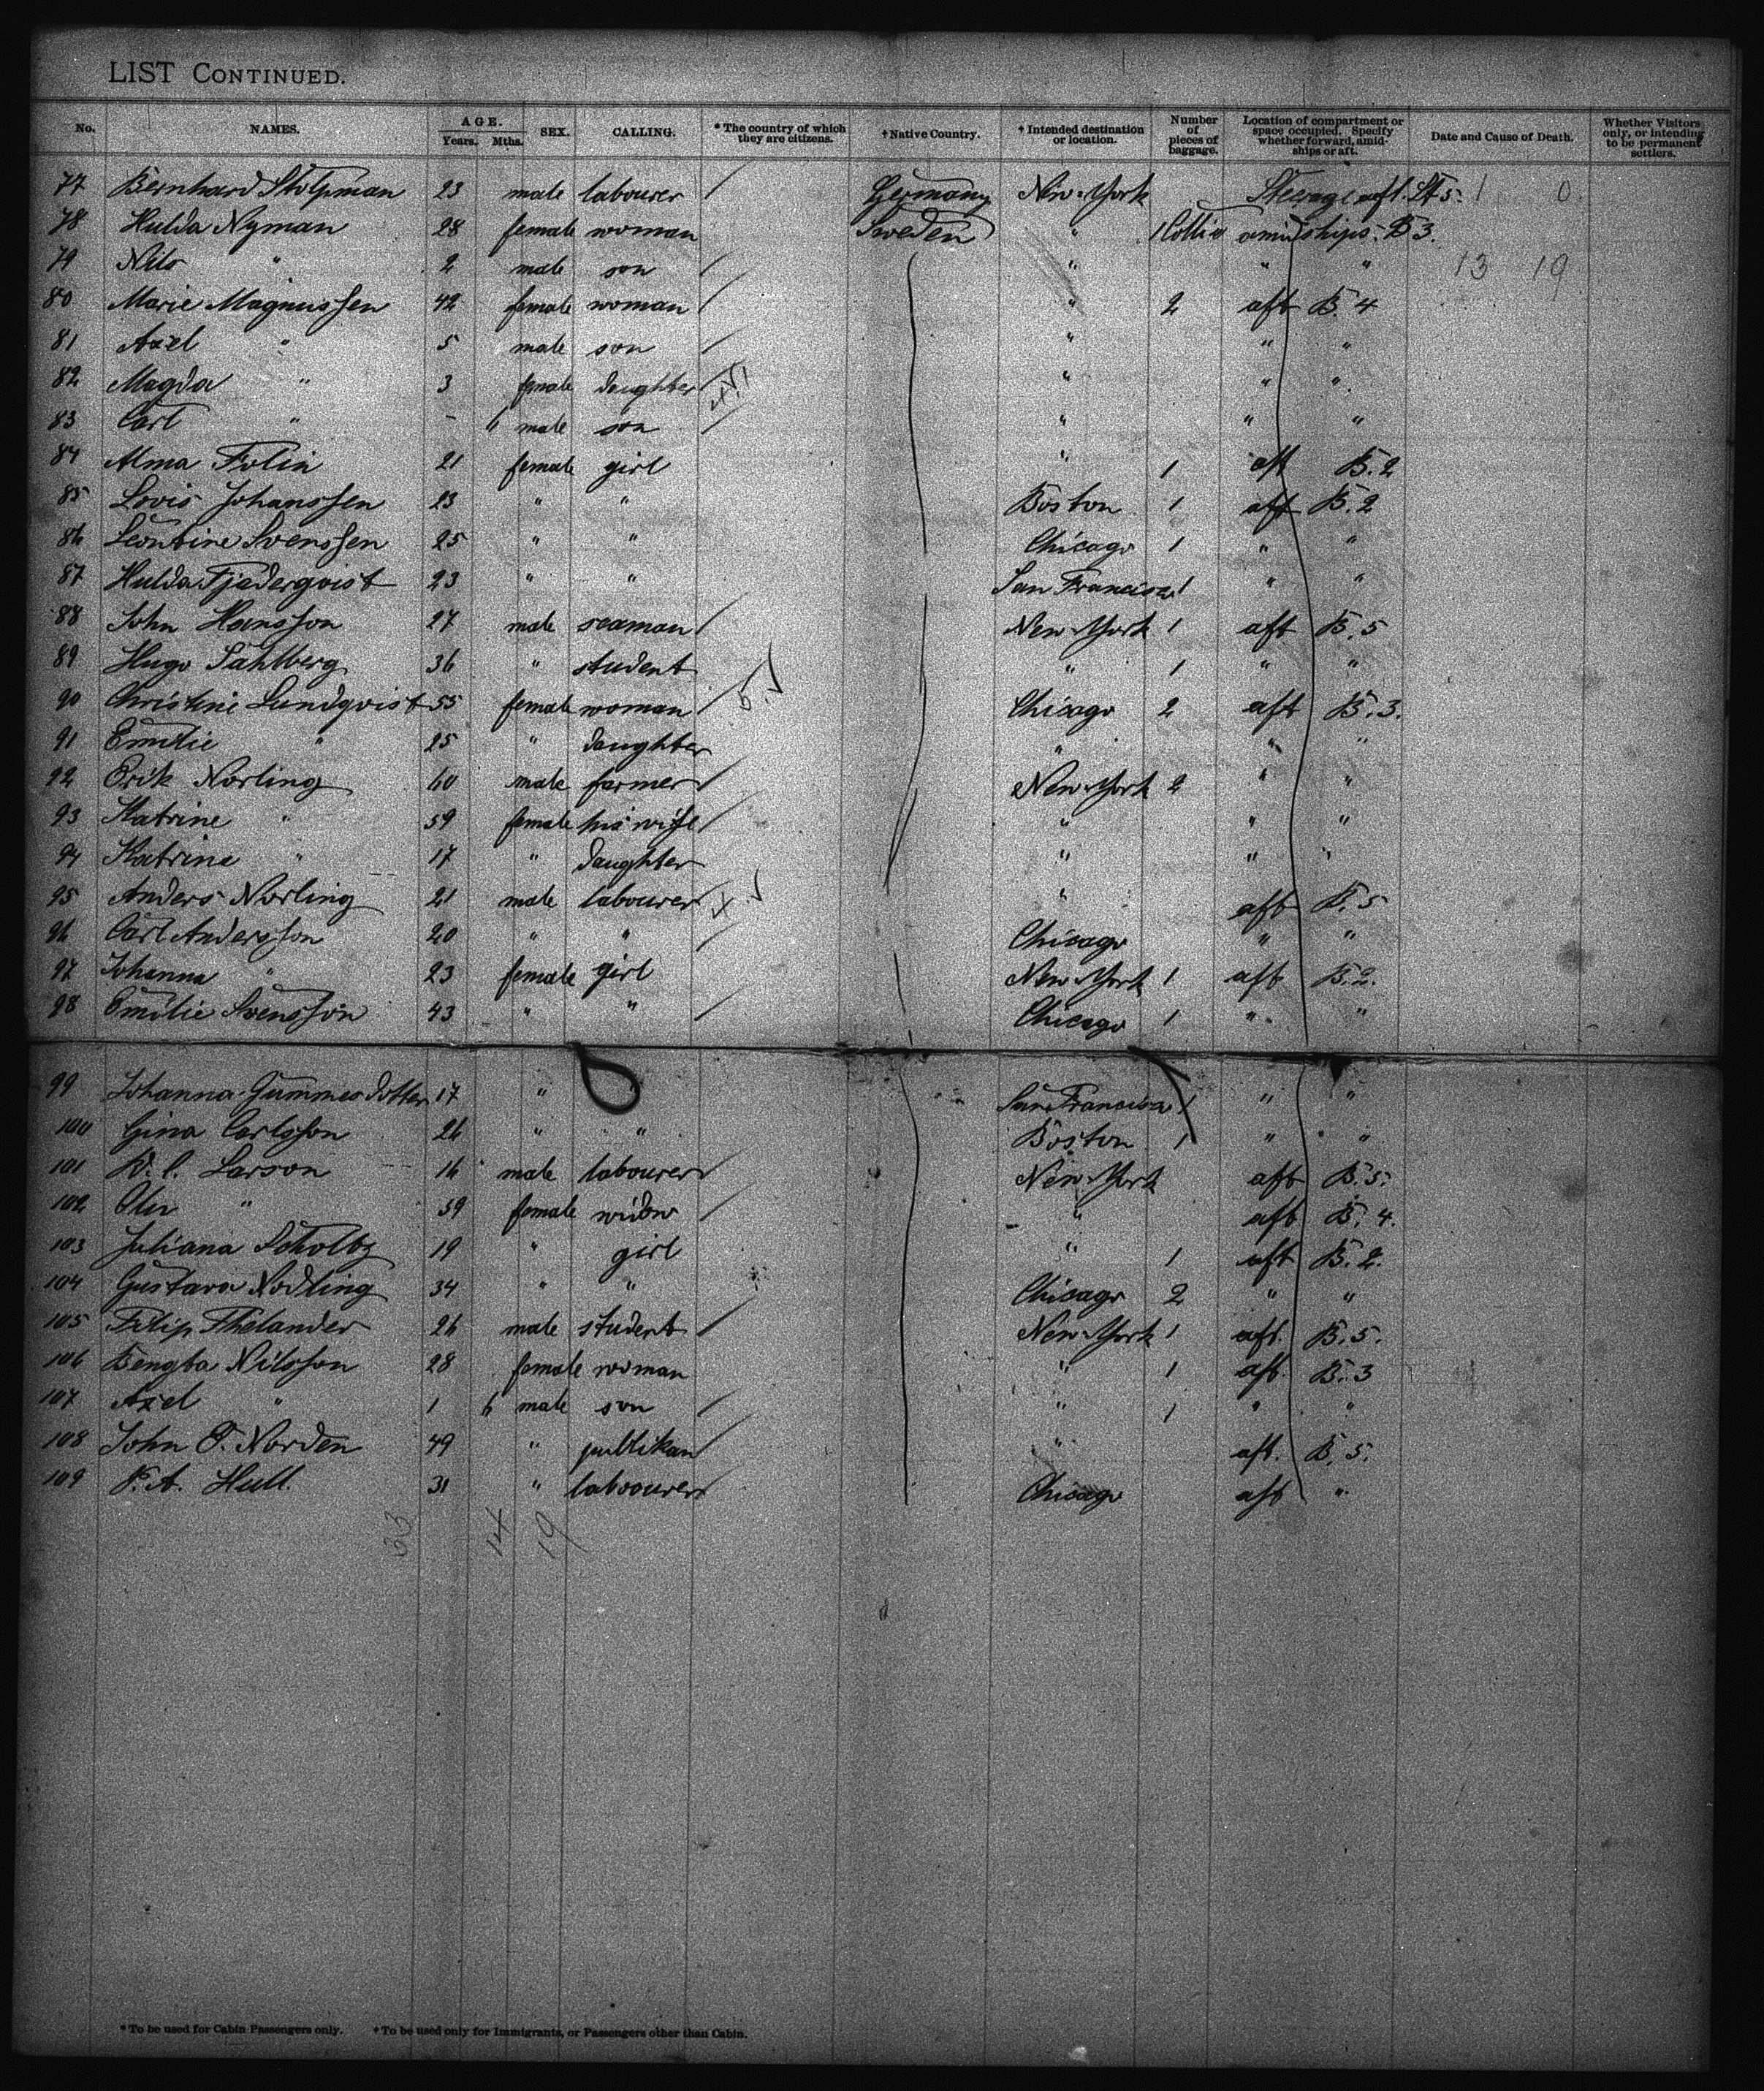 LIST CONTINUED.
No. NAMES. AGE. Years. Mths. SEX. CALLING. * The country of which they are citizens. † Native Country. † Intended destination or location. Number of pieces of baggage. Location of compartment or space occupied. Specify whether forward, amidships or aft. Date and Cause of Death. Whether Visitors only, or intending to be permanent settlers.
77 Bernhard Stolpman 23 male labourer / Germany New-York Steerage aft. 5. 1 0
78 Hulda Nyman 28 female woman Sweden " 1 amidships. B 3.
79 Nils " 2 male son / " " " 13 19
80 Marie Magnussen 42 female woman / " 2 aft B. 4
81 Axel " 5 male son / " " "
82 Magda " 3 female daughter / " " "
83 Carl " - 6 male son / " " "
84 Alma Folin 21 female girl " 1 aft B. 2
85 Lovis Johanssen 23 " " Boston 1 aft B. 2
86 Leontine Svenssen 25 " " Chicago 1 " "
87 Hulda Fjederqvist 23 " " San Francisco 1 " "
88 John Hansson 27 male seaman / New-York 1 aft B. 5
89 Hugo Sahlberg 36 " student " 1 " "
90 Christine Lundqvist 55 female woman / Chicago 2 aft B. 3.
91 Emilie " 25 " daughter " " "
92 Erik Norling 60 male farmer / New-York 2 " "
93 Katrine " 59 female his wife / " " "
94 Katrina " 17 " daughter " " "
95 Anders Norling 21 male labourer " aft B. 5
96 Carl Andersson 20 " " / Chicago " "
97 Johanna " 23 female girl New-York 1 aft B. 2.
98 Emilie Svensson 43 " " / Chicago 1 " "
99 Johanna Gummesdotter 17 " " San Francisco 1 " "
100 Gina Carlsson 26 " " Boston 1 " "
101 Larson 16 male labourer / New-York aft B. 5.
102 " 59 female widow / " aft B. 4.
103 Juliana Scholtz 19 " girl " 1 aft B. 2.
104 Gustava Nodling 34 " " Chicago 2 " "
105 Filip Thelander 26 male student / New-York 1 aft. B. 5.
106 Bengta Nilsson 28 female woman " 1 aft. B. 3
107 Axel " 1 6 male son / " 1 " "
108 John Norden 49 " publikan / " aft. B. 5.
109 A. Hull. 31 " labourer / Chicago aft "
33 14 19
* To be used for Cabin Passengers only. † To be used only for Immigrants, or Passengers other than Cabin.